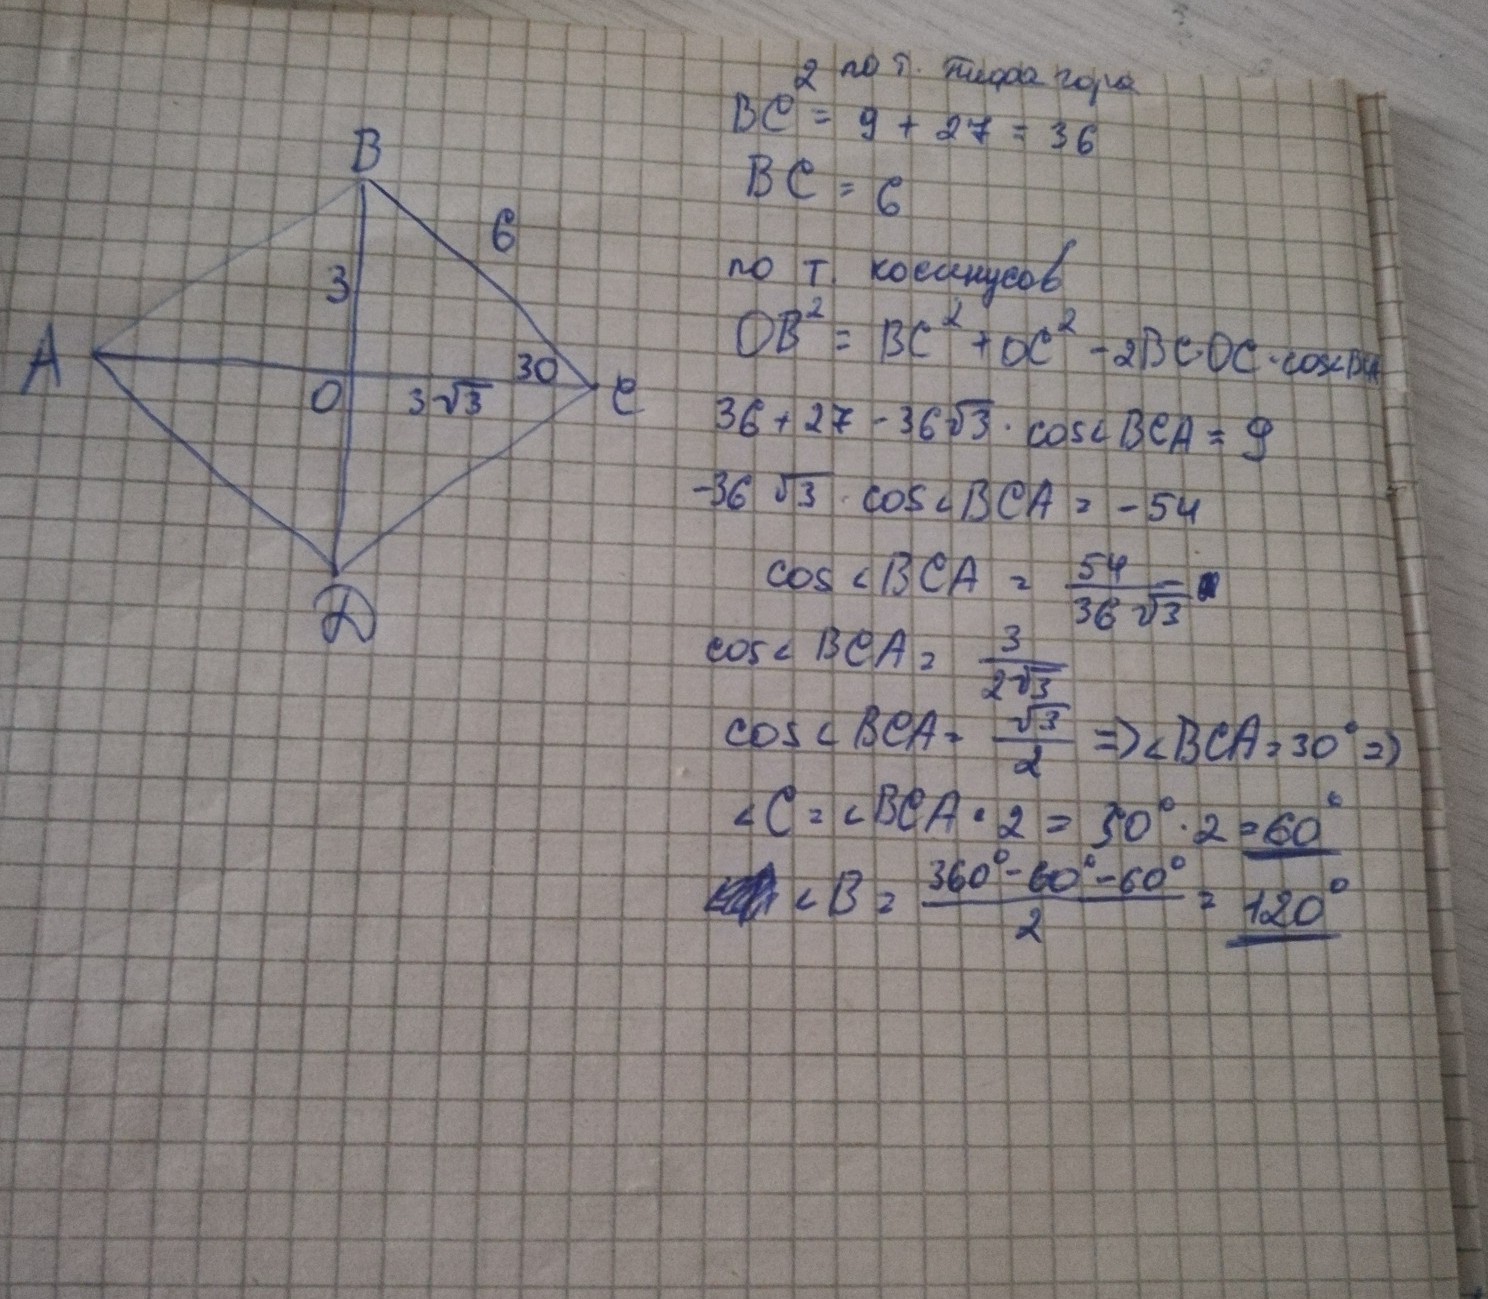 B
6
3
A
30
O
3√3
C
D
2 по т. Пифагора
BC² = 9 + 27 = 36
BC = 6
по т. косинусов
OB² = BC² + OC² - 2BC·OC·cos<BCA
36 + 27 - 36√3 · cos<BCA = 9
-36√3 · cos<BCA = -54
cos<BCA = 54/36√3
cos<BCA = 3/2√3
cos<BCA = √3/2 => <BCA = 30° =>
<C = <BCA · 2 = 30° · 2 = 60°
<B = 360° - 60° - 60°/2 = 120°